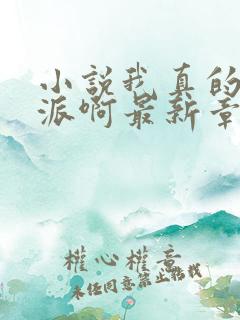 小説我真的
派啊最新章
權心權意
未經同意禁止轉載